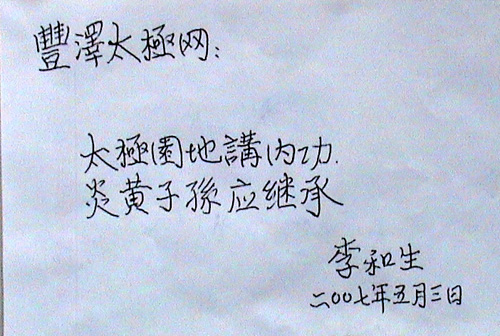 豐澤太極网:
太極園地講内功.
炎黄子孫应继承
李和生
二00七年五月三日